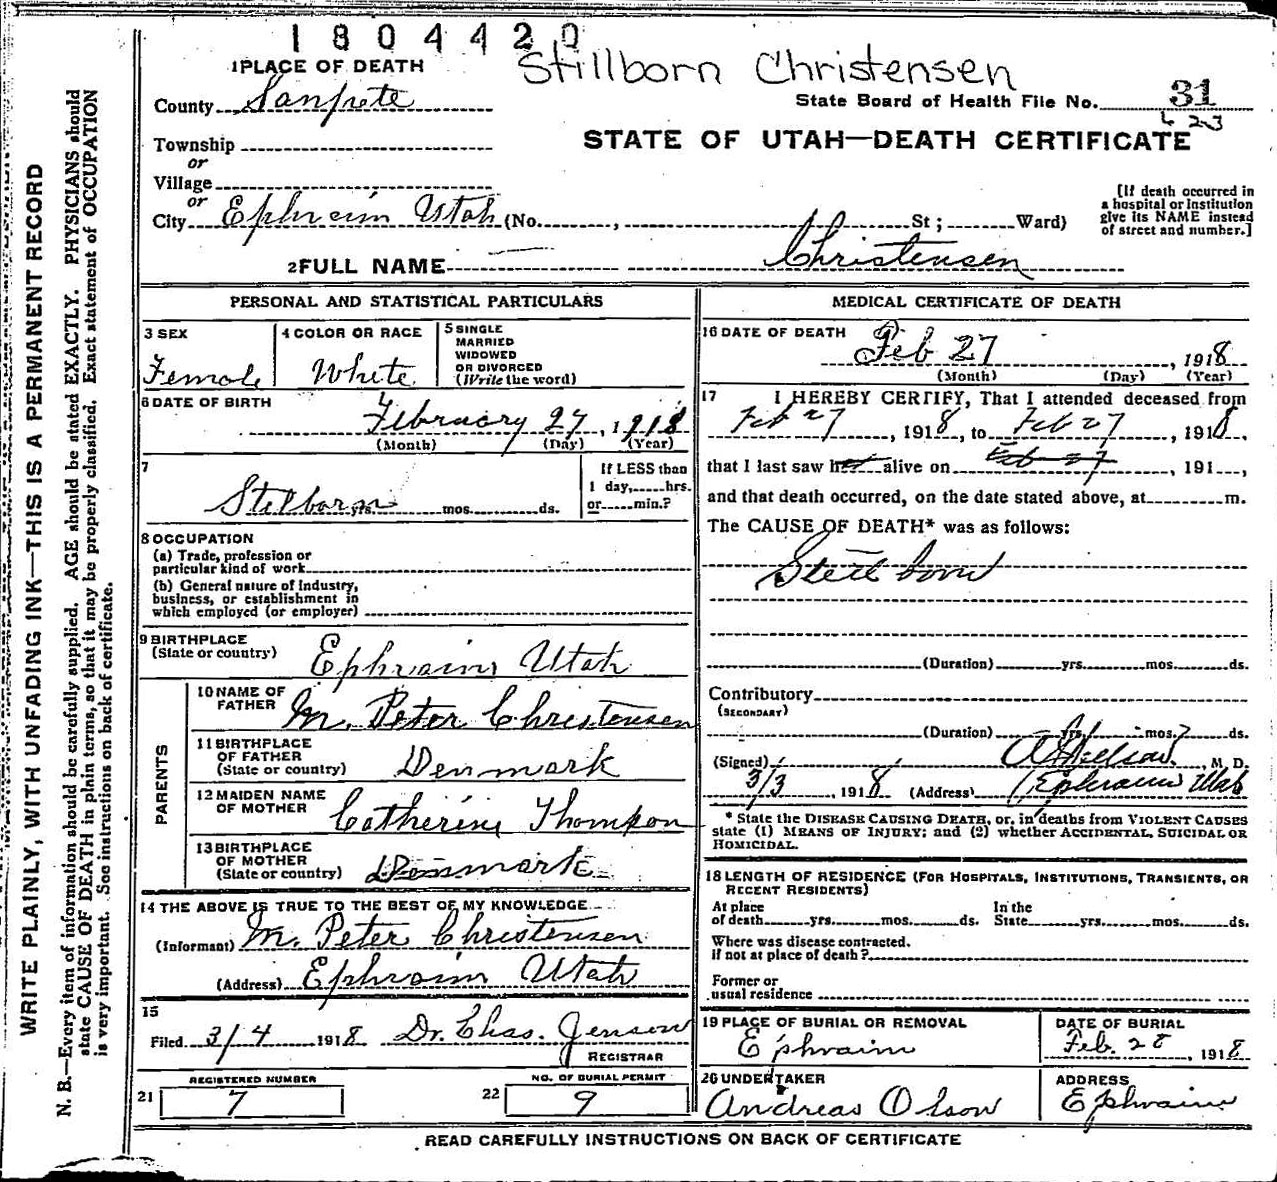 1804420
Stillborn Christensen
1 PLACE OF DEATH
County Sanpete
State Board of Health File No. 31
423
Township
or
Village
or
City Ephraim Utah (No. , St; Ward)
STATE OF UTAH—DEATH CERTIFICATE
[If death occurred in
a hospital or institution
give its NAME instead
of street and number.]
2 FULL NAME Christensen
PERSONAL AND STATISTICAL PARTICULARS
3 SEX
Female
4 COLOR OR RACE
White
5 SINGLE
MARRIED
WIDOWED
OR DIVORCED
(Write the word)
6 DATE OF BIRTH
February 27, 1918
(Month) (Day) (Year)
7
Stilborn yrs. mos. ds.
If LESS than
1 day, hrs.
or min.?
8 OCCUPATION
(a) Trade, profession or
particular kind of work
(b) General nature of Industry,
business, or establishment in
which employed (or employer)
9 BIRTHPLACE
(State or country) Ephraim Utah
PARENTS
10 NAME OF
FATHER M. Peter Christensen
11 BIRTHPLACE
OF FATHER
(State or country) Denmark
12 MAIDEN NAME
OF MOTHER Catherine Thompson
13 BIRTHPLACE
OF MOTHER
(State or country) Denmark
14 THE ABOVE IS TRUE TO THE BEST OF MY KNOWLEDGE
(Informant) M. Peter Christensen
(Address) Ephraim Utah
15
Filed 3/4 1918 Dr. Chas. Jenson
REGISTRAR
21 REGISTERED NUMBER
7
22 NO. OF BURIAL PERMIT
9
MEDICAL CERTIFICATE OF DEATH
16 DATE OF DEATH Feb 27, 1918
(Month) (Day) (Year)
17 I HEREBY CERTIFY, That I attended deceased from
Feb 27, 1918, to Feb 27, 1918,
that I last saw her alive on Feb 27, 191 ,
and that death occurred, on the date stated above, at m.
The CAUSE OF DEATH* was as follows:
Still born
(Duration) yrs. mos. ds.
Contributory
(SECONDARY)
(Duration) yrs. mos. ds.
(Signed) , M. D.
3/3, 1918 (Address) Ephraim Utah
* State the DISEASE CAUSING DEATH, or, in deaths from VIOLENT CAUSES
state (1) MEANS OF INJURY; and (2) whether ACCIDENTAL, SUICIDAL OR
HOMICIDAL.
18 LENGTH OF RESIDENCE (FOR HOSPITALS, INSTITUTIONS, TRANSIENTS, OR
RECENT RESIDENTS)
At place
of death yrs. mos. ds.
In the
State yrs. mos. ds.
Where was disease contracted.
if not at place of death?
Former or
usual residence
19 PLACE OF BURIAL OR REMOVAL
Ephraim
DATE OF BURIAL
Feb. 28, 1918
20 UNDERTAKER
Andreas Olson
ADDRESS
Ephraim
READ CAREFULLY INSTRUCTIONS ON BACK OF CERTIFICATE
WRITE PLAINLY, WITH UNFADING INK—THIS IS A PERMANENT RECORD
N. B.—Every item of information should be carefully supplied. AGE should be stated EXACTLY. PHYSICIANS should
state CAUSE OF DEATH in plain terms, so that it may be properly classified. Exact statement of OCCUPATION
is very important. See instructions on back of certificate.